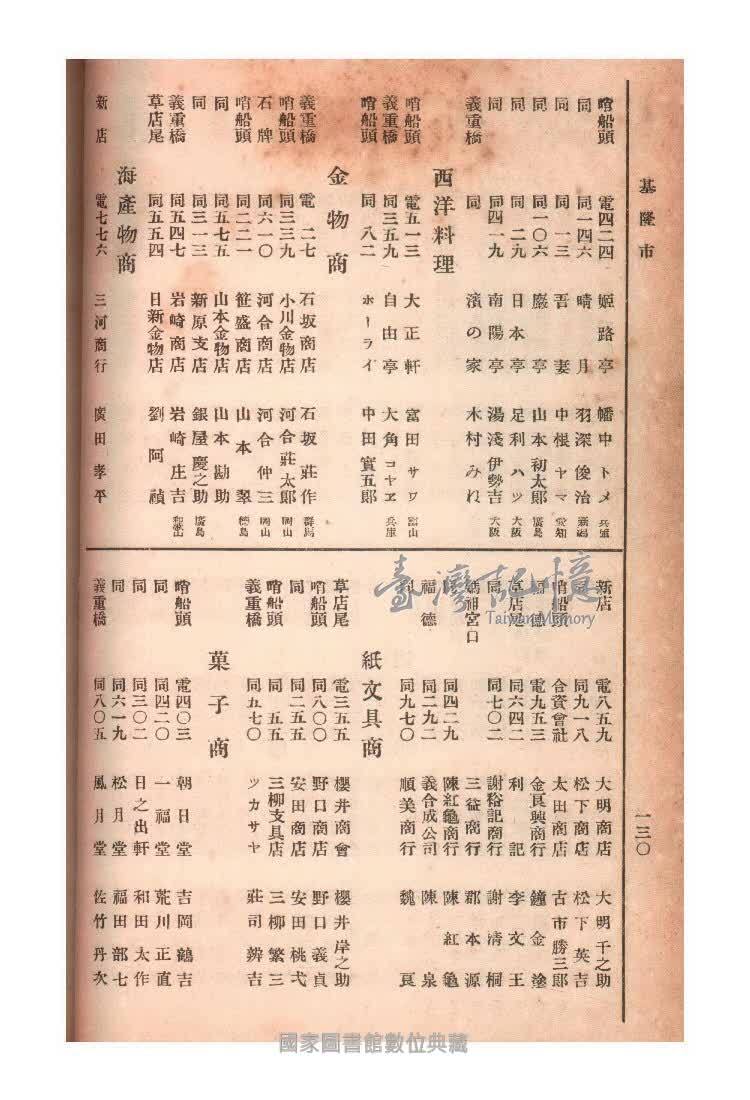 基隆市
一三〇
哨船頭 電四二四 姬路亭 幡中トメ 兵庫
同 同一四六 晴月 羽深俊治 新潟
同 同一三 吾妻 中根ヤマ 愛知
同 同一〇六 巖亭 山本初太郎 廣島
同 同二九 日本亭 足利ハツ 大阪
同 同四一九 南陽亭 湯淺伊勢吉 大阪
義重橋 同 濱の家 木村みね
西洋料理
哨船頭 電五一三 大正軒 富田サワ 富山
義重橋 同三五九 自由亭 大角コヤヱ 兵庫
哨船頭 同八二 ホーライ 中田實五郎
金物商
義重橋 電二七 石坂商店 石坂莊作 群馬
哨船頭 同三三九 小川金物店 河合莊太郎 岡山
石牌 同六一〇 河合商店 河合仲三 岡山
哨船頭 同二二一 笹盛商店 山本翠 德島
同 同五七五 山本金物店 山本勘助
同 同三一三 新原支店 銀屋慶之助 廣島
義重橋 同五四七 岩崎商店 岩崎庄吉 和歌山
草店尾 同五五四 日新金物店 劉阿禎
海產物商
新店 電七七六 三河商行 廣田孝平
新店 電八五九 大明商店 大明千之助
同 同九一八 松下商店 松下英吉
哨船頭 合資會社 太田商店 古市勝三郎
福德 電九五三 金良興商行 鐘金塗
草店尾 同六四二 利記 李文王
同 同七〇二 謝裕記商行 謝清桐
媽祖宮口 三益商行 郡本源
同四二九 陳紅龜商行 陳紅龜
福德 同二九二 義合成公司 陳泉
同九七〇 順美商行 魏良
紙文具商
草店尾 電三五五 櫻井商會 櫻井岸之助
同 同八〇〇 野口商店 野口義貞
哨船頭 同二五五 安田商店 安田桃弌
哨船頭 同五五 三柳支具店 三柳繁三
義重橋 同五七〇 ツカサヤ 莊司辨吉
菓子商
哨船頭 電四〇三 朝日堂 吉岡鶴吉
同 同四二〇 一福堂 荒川正直
同 同三〇二 日之出軒 和田太作
同 同六一九 松月堂 福田部七
義重橋 同八〇五 風月堂 佐竹丹次
臺灣記憶
Taiwan Memory
國家圖書館數位典藏